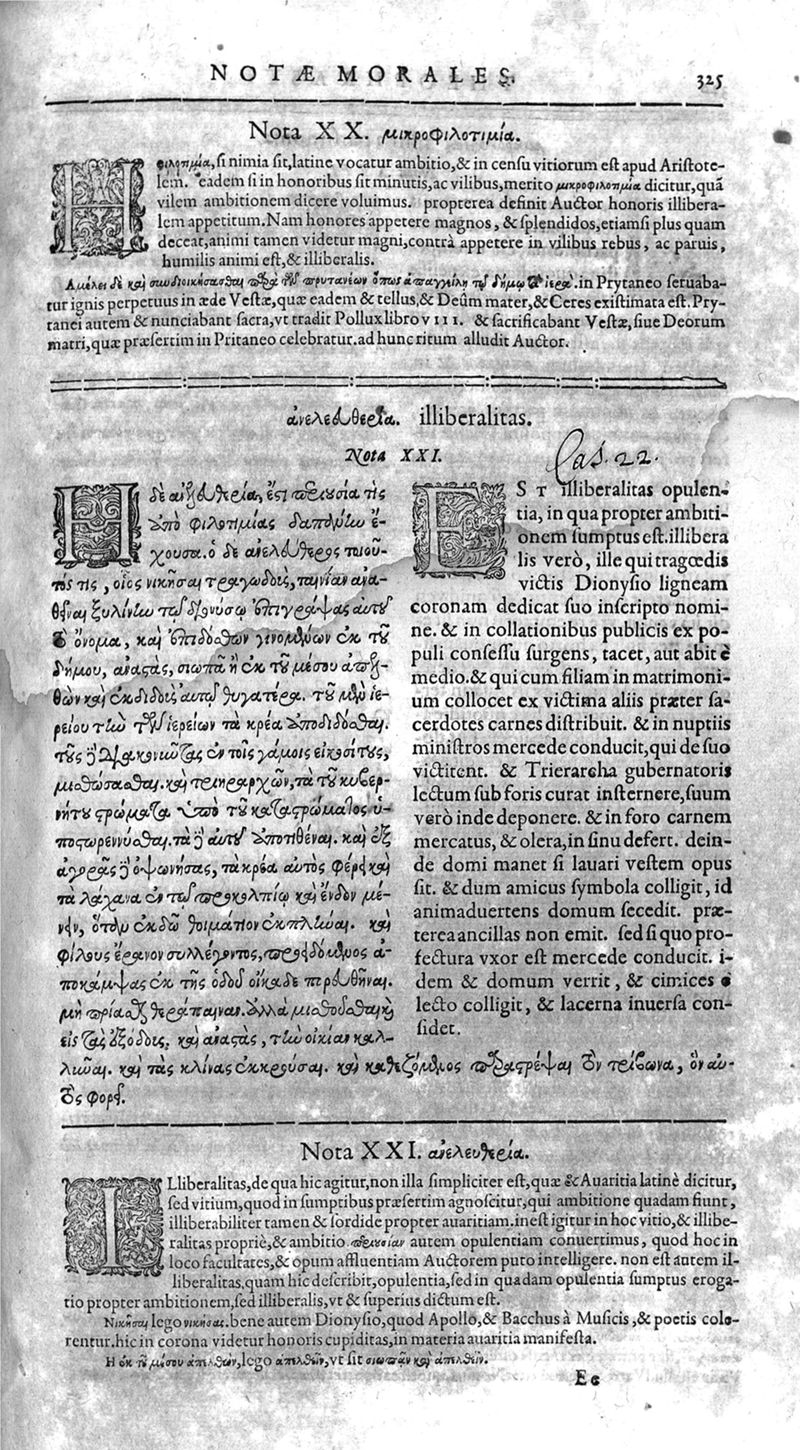 NOTÆ MORALES.
325
Nota XX. μικροφιλοτιμία.
Φιλοτιμία, si nimia sit, latine vocatur ambitio, & in censu vitiorum est apud Aristote-
lem. eadem si in honoribus sit minutis, ac vilibus, merito μικροφιλοτιμία dicitur, quã
vilem ambitionem dicere voluimus. propterea definit Auctor honoris illibera-
lem appetitum. Nam honores appetere magnos, & splendidos, etiamsi plus quam
deceat, animi tamen videtur magni, contrà appetere in vilibus rebus, ac paruis,
humilis animi est, & illiberalis.
Αμέλει δὲ καὶ συνδιοικήσασθαι παρὰ τῶν πρυτανέων ὅπως ἀπαγγείλῃ τῷ δήμῳ τὰ ἱερά. in Prytaneo seruaba-
tur ignis perpetuus in æde Vestæ, quæ eadem & tellus, & Deûm mater, & Ceres existimata est. Pry-
tanei autem & nunciabant sacra, vt tradit Pollux libro VIII. & sacrificabant Vestæ, siue Deorum
matri, quæ præsertim in Pritaneo celebratur. ad hunc ritum alludit Auctor.
ἀνελευθερία. illiberalitas.
Nota XXI.
Cas. 22.
Η δὲ ἀνελευθερία, ἐστὶ περιουσία τὶς
ἀπὸ φιλοτιμίας δαπάνην ἔ-
χουσα. ὁ δὲ ἀνελεύθερος τοιοῦ-
τός τις, οἷος νικῆσαι τραγωδοῖς, ταινίαν ἀνα-
θεῖναι ξυλίνην τῷ διονύσῳ ἐπιγράψας αὐτοῦ
τὸ ὄνομα, καὶ ἐπιδόσεων γινομένων ἐκ τοῦ
δήμου, ἀναστὰς, σιωπᾶ ἢ ἐκ τοῦ μέσου ἀπελ-
θὼν καὶ ἐκδιδοὺς αὐτοῦ θυγατέρα. τοῦ μὲν ἱε-
ρείου τῶν ἱερείων τὰ κρέα ἀποδίδοσθαι.
τοὺς δὲ διακονοῦντας ἐν τοῖς γάμοις οἰκοσίτους,
μισθώσασθαι. καὶ τριηραρχῶν, τὰ τοῦ κυβερ-
νήτου στρώματα ὑπὸ τοῦ καταστρώματος ὑ-
ποστορέννυσθαι. τὰ δὲ αὐτοῦ ἀποτιθέναι. καὶ ἐξ
ἀγορᾶς δὲ ὀψωνήσας, τὰ κρέα αὐτὸς φέρειν καὶ
τὰ λάχανα ἐν τῷ προκολπίῳ καὶ ἔνδον μέ-
νειν, ὅταν ἐκδῷ θοιμάτιον ἐκπλῦναι. καὶ
φίλους ἔρανον συλλέγοντος, προϊδόμενος ἀ-
ποκάμψας ἐκ τῆς ὁδοῦ οἴκαδε πορευθῆναι.
μὴ πρίασθαι θεράπαιναν. ἀλλὰ μισθοῦσθαι
εἰς τὰς ἐξόδους, καὶ ἀναστὰς, τὴν οἰκίαν καλ-
λῦναι. καὶ τὰς κλίνας ἐκκρούσαι. καὶ καθεζόμενος παραστρέψαι τὸν τρίβωνα, ὃν αὐ-
τὸς φορεῖ.
EST illiberalitas opulen-
tia, in qua propter ambiti-
onem sumptus est. illibera
lis verò, ille qui tragœdis
victis Dionysio ligneam
coronam dedicat suo inscripto nomi-
ne. & in collationibus publicis ex po-
puli consessu surgens, tacet, aut abit è
medio. & qui cum filiam in matrimoni-
um collocet ex victima aliis præter sa-
cerdotes carnes distribuit. & in nuptiis
ministros mercede conducit, qui de suo
victitent. & Trierarcha gubernatoris
lectum sub foris curat insternere, suum
verò inde deponere. & in foro carnem
mercatus, & olera, in sinu defert. dein-
de domi manet si lauari vestem opus
sit. & dum amicus symbola colligit, id
animaduertens domum secedit. præ-
terea ancillas non emit. sed si quo pro-
fectura vxor est mercede conducit. i-
dem & domum verrit, & cimices è
lecto colligit, & lacerna inuersa con-
sidet.
Nota XXI. ἀνελευθερία.
ILliberalitas, de qua hic agitur, non illa simpliciter est, quæ & Auaritia latinè dicitur,
sed vitium, quod in sumptibus præsertim agnoscitur, qui ambitione quadam fiunt,
illiberabiliter tamen & sordide propter auaritiam. inest igitur in hoc vitio, & illibe-
ralitas propriè, & ambitio. περιουσίαν autem opulentiam conuertimus, quod hoc in
loco facultates, & opum affluentiam Auctorem puto intelligere. non est autem il-
liberalitas, quam hic describit, opulentia, sed in quadam opulentia sumptus eroga-
tio propter ambitionem, sed illiberalis, vt & superius dictum est.
Νικῆσαι lego νικήσας. bene autem Dionysio, quod Apollo, & Bacchus à Musicis, & poetis cole-
rentur. hic in corona videtur honoris cupiditas, in materia auaritia manifesta.
Η ἐκ τοῦ μέσου ἀπελθὼν, lego ἀπελθεῖν, vt sit σιωπᾶν καὶ ἀπελθεῖν.
Ee